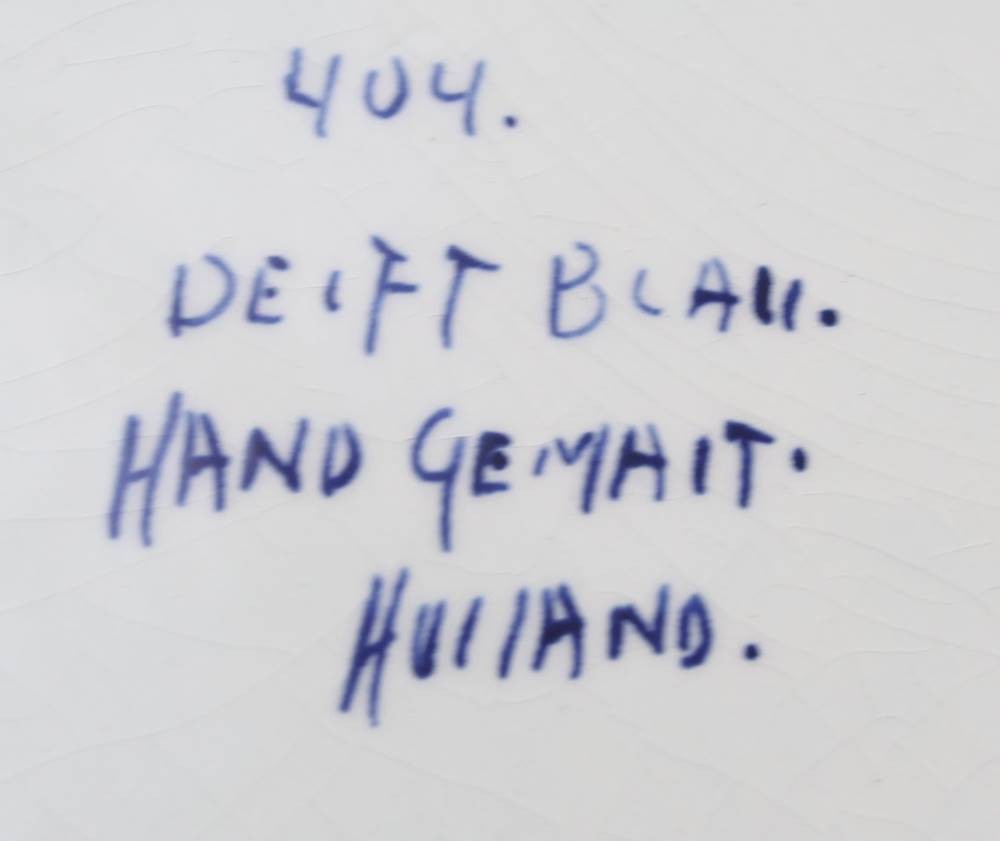 404.
DElFT BLAU.
HAND GEMAlT.
HOllAND.